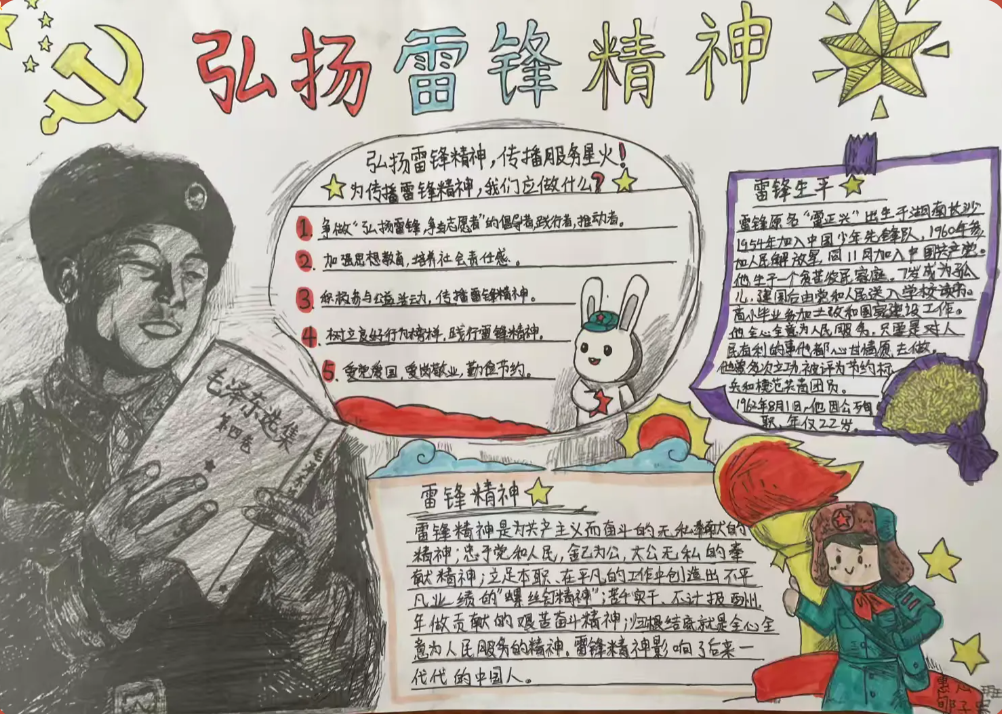 弘扬雷锋精神
弘扬雷锋精神，传播服务星火！
为传播雷锋精神，我们应做什么？
1. 争做“弘扬雷锋，争当志愿者”的倡导者，践行者，推动者。
2. 加强思想教育，培养社会责任感。
3. 积极参与公益活动，传播雷锋精神。
4. 树立良好行为榜样，践行雷锋精神。
5. 爱党爱国，爱岗敬业，勤俭节约。
雷锋生平
雷锋原名“雷正兴”出生于湖南长沙
1954年加入中国少年先锋队，1960年参
加人民解放军，同11月加入中国共产党。
他生于一个贫苦农民家庭，7岁成为孤
儿，建国后由党和人民送入学校读书。
高小毕业务加土改和国家建设工作。
他全心全意为人民服务，只要是对人
民有利的事他都心甘情愿去做，
他曾多次立功被评为节约标
兵和模范共青团员。
1962年8月1日他因公殉
职，年仅22岁。
毛泽东选集
第四卷
雷锋精神
雷锋精神是为共产主义而奋斗的无私奉献的
精神；忠于党和人民，舍己为公，大公无私的奉
献精神；立足本职、在平凡的工作中创造出不平
凡业绩的“螺丝钉精神”；苦干实干、不计报酬，
年做贡献的艰苦奋斗精神；归根结底就是全心全
意为人民服务的精神，雷锋精神影响了后来一
代代的中国人。